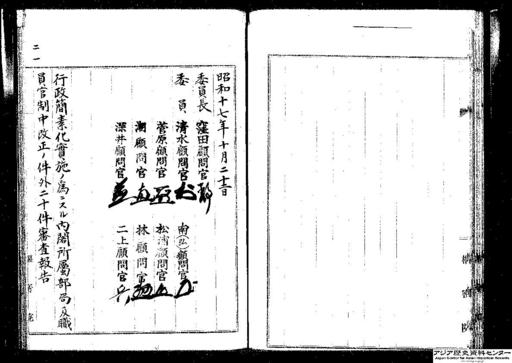 昭和十七年十月二十三日
委員長 窪田顧問官
委員 清水顧問官 南(弘)顧問官
菅原顧問官 松浦顧問官
潮顧問官 林顧問官
深井顧問官 二上顧問官
行政簡素化實施ノ爲ニスル内閣所屬部局及職
員官制中改正ノ件外二十件審査報告
二一
アジア歴史資料センター
Japan Center for Asian Historical Records